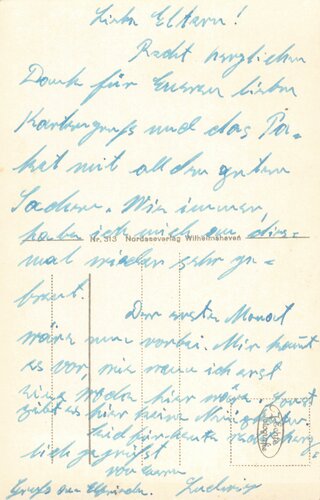 Liebe Eltern!
Recht herzlichen
Dank für Eueren lieben
Kartengruß und das Pa-
ket mit all den guten
Sachen. Wie immer
habe ich mich auch dies-
Nr. 313 Nordseeverlag Wilhelmshaven
mal wieder sehr ge-
freut.
Der erste Monat
wäre nun vorbei. Mir kommt
es vor, wie wenn ich erst
eine Woche hier wäre. Sonst
gibt es hier keine Neuigkeiten.
Seid für heute recht herz-
lich gegrüßt
von Eurem
Ludwig
Gruß an